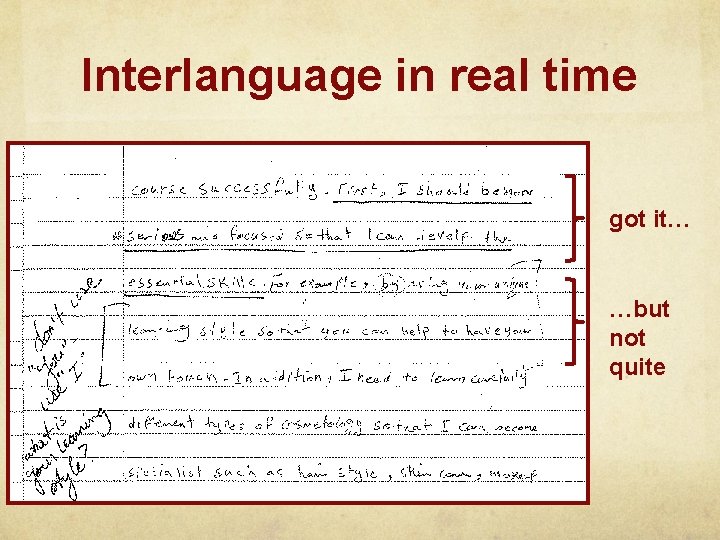 Interlanguage in real time
course successfully. First, I should be more
serious and focused so that I can develop the
essential skills. For example, by using my own unique
learning style so that you can help to have your
own touch. In addition, I need to learn carefully
different types of cosmetology so that I can become
specialist such as hair style, skin care, makeup
don't use
"you"
use "I"
what is
your learning
style?
got it…
…but
not
quite